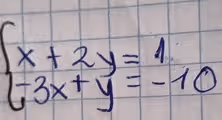 x + 2y = 1
-3x + y = -10